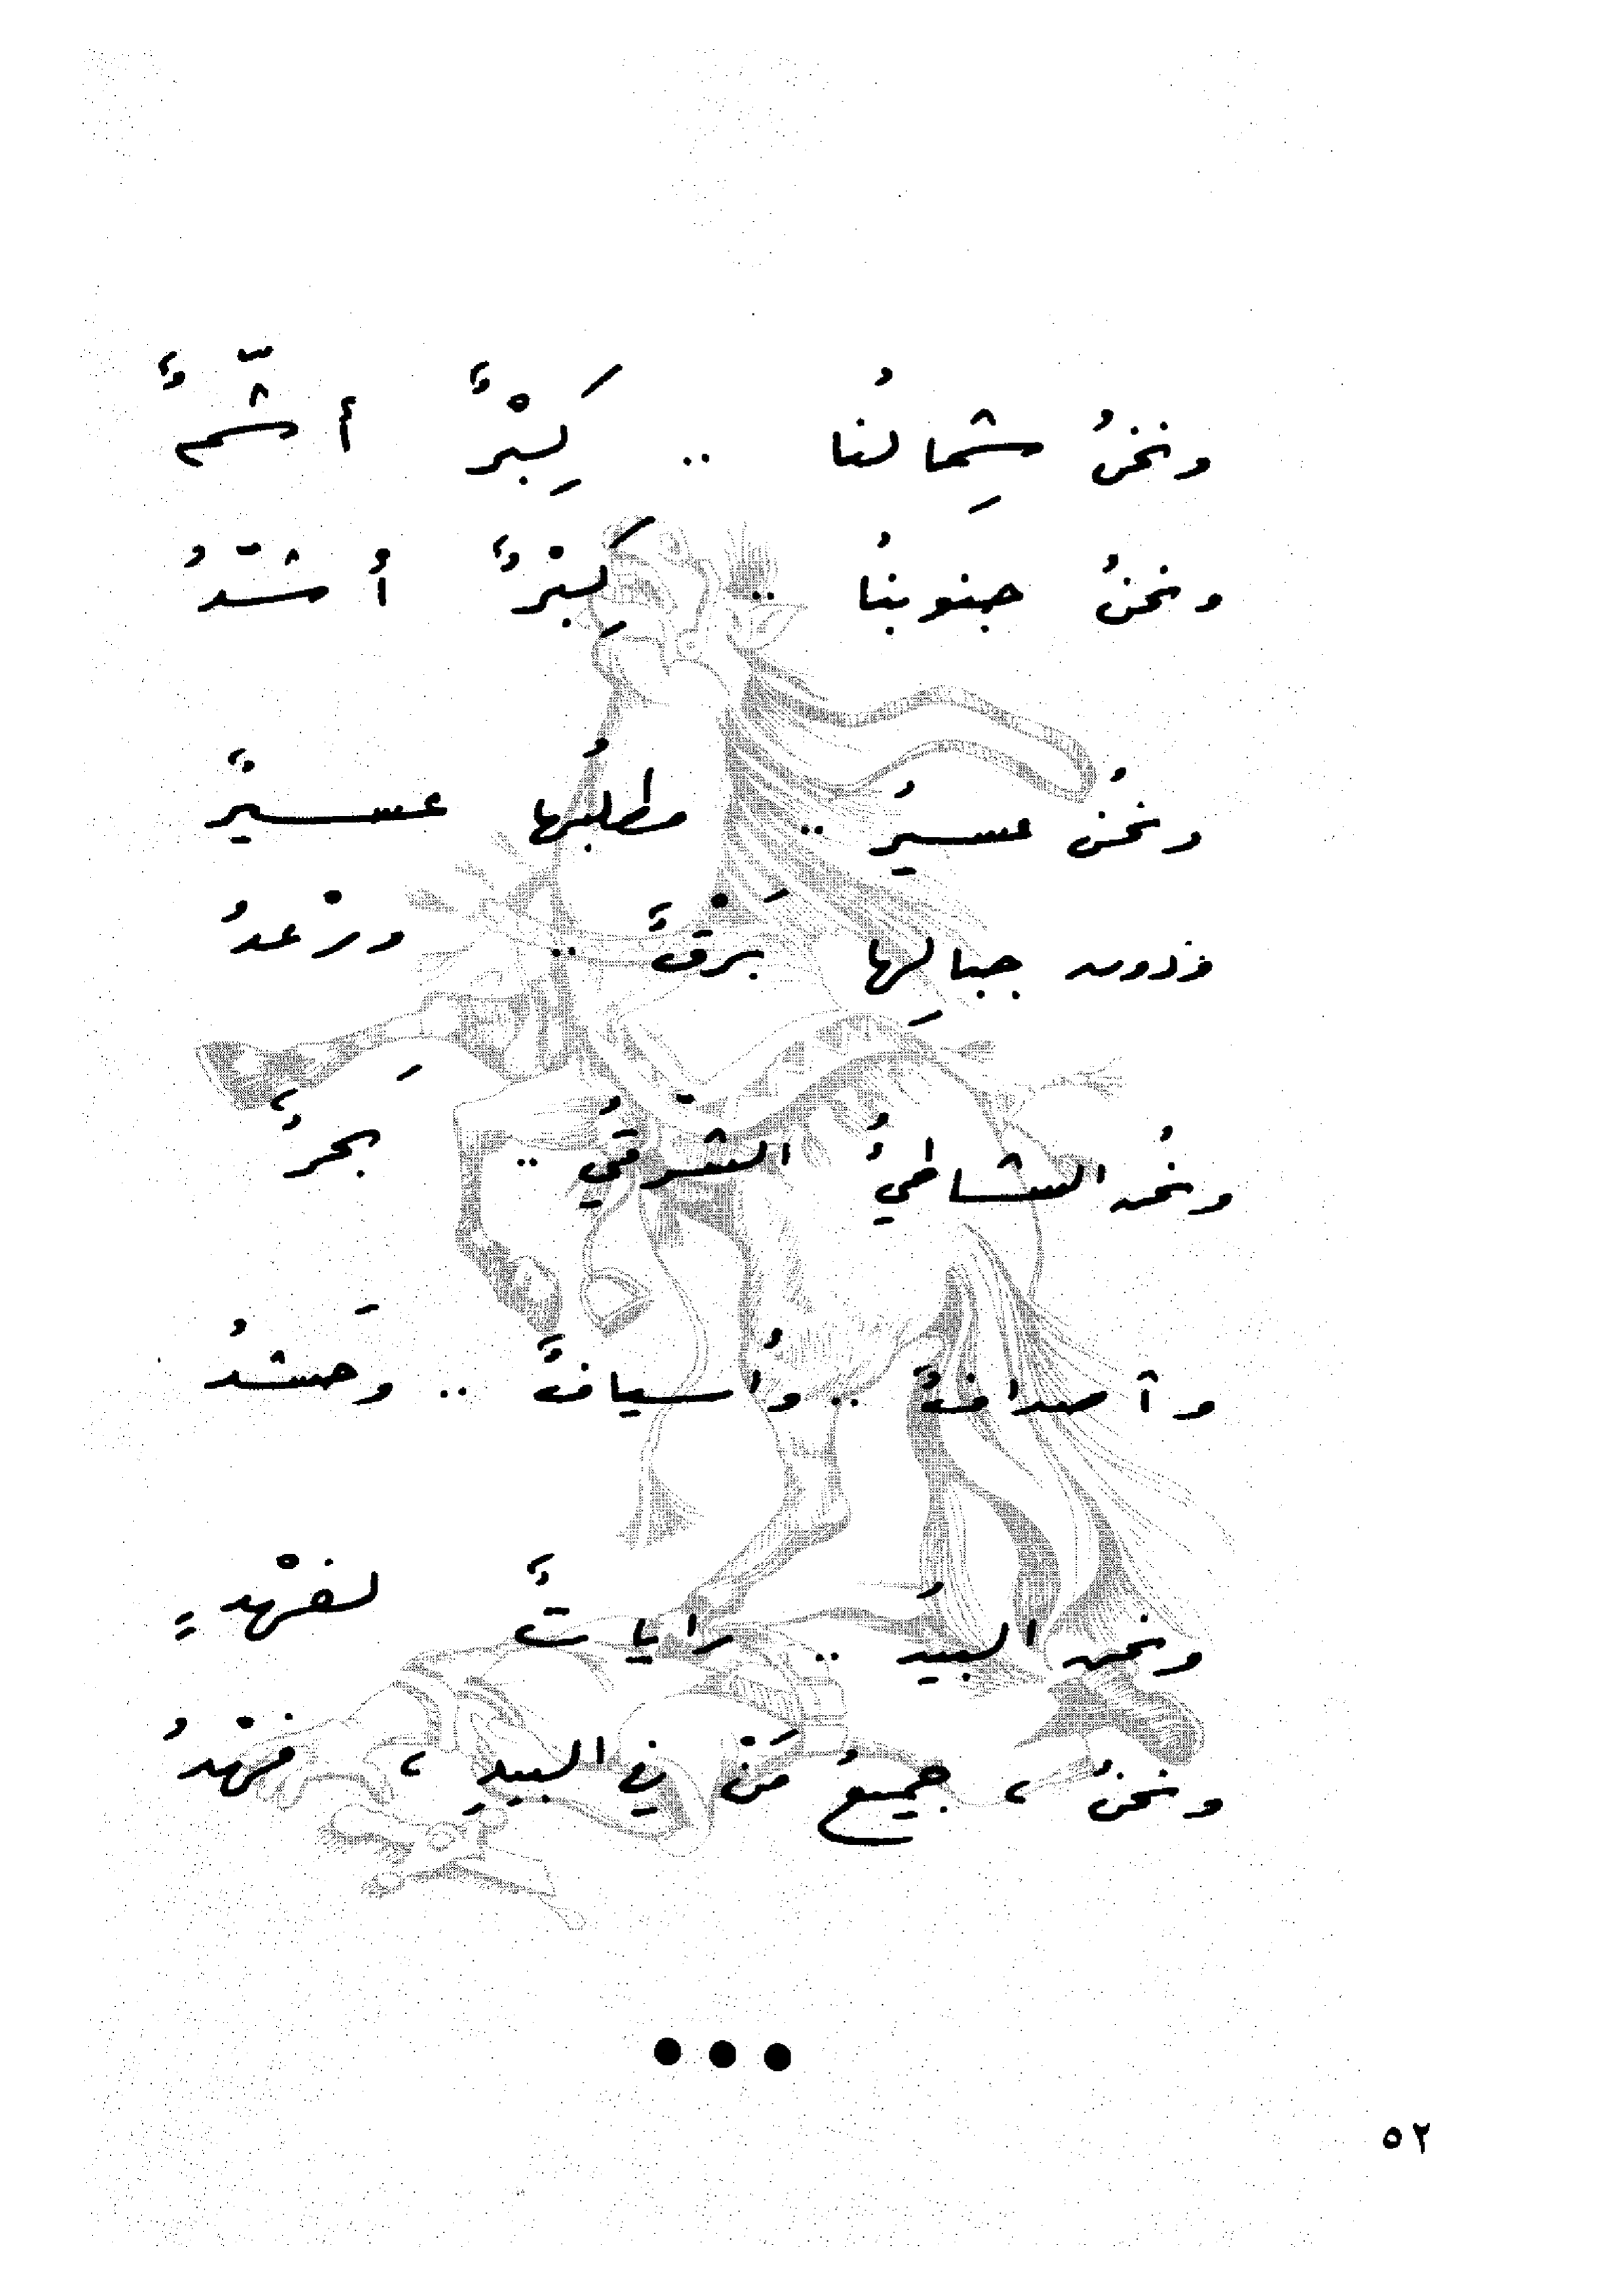 ونحنُ شِمالُنا .. كِبْرٌ أشمٌّ
ونحنُ جنوبنُا .. كِبْرٌ أشدُّ
ونحنُ عسيرُ .. مطلبُها عسيرٌ
ودون جبالِها بَرْقٌ .. ورْعدُ
ونحنُ الشاطيُ الشرقيُّ .. بَحرٌ
وآصدافٌ .. وأُسيافٌ .. وحَشدُ
ونحن البيدُ .. راياتٌ لفهْدٍ
ونحنُ ، جميعُ مَنْ في البيدِ ، فهْدُ
٥٢